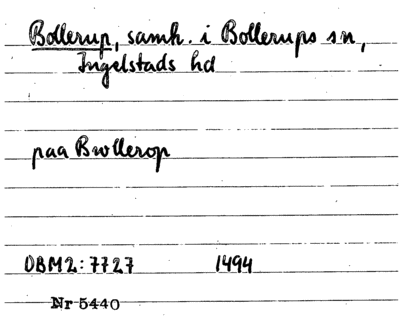 Bollerup, samh. i Bollerups sn,
Ingelstads hd
paa Bwllerop
DBM2:7727 1494
Nr 5440